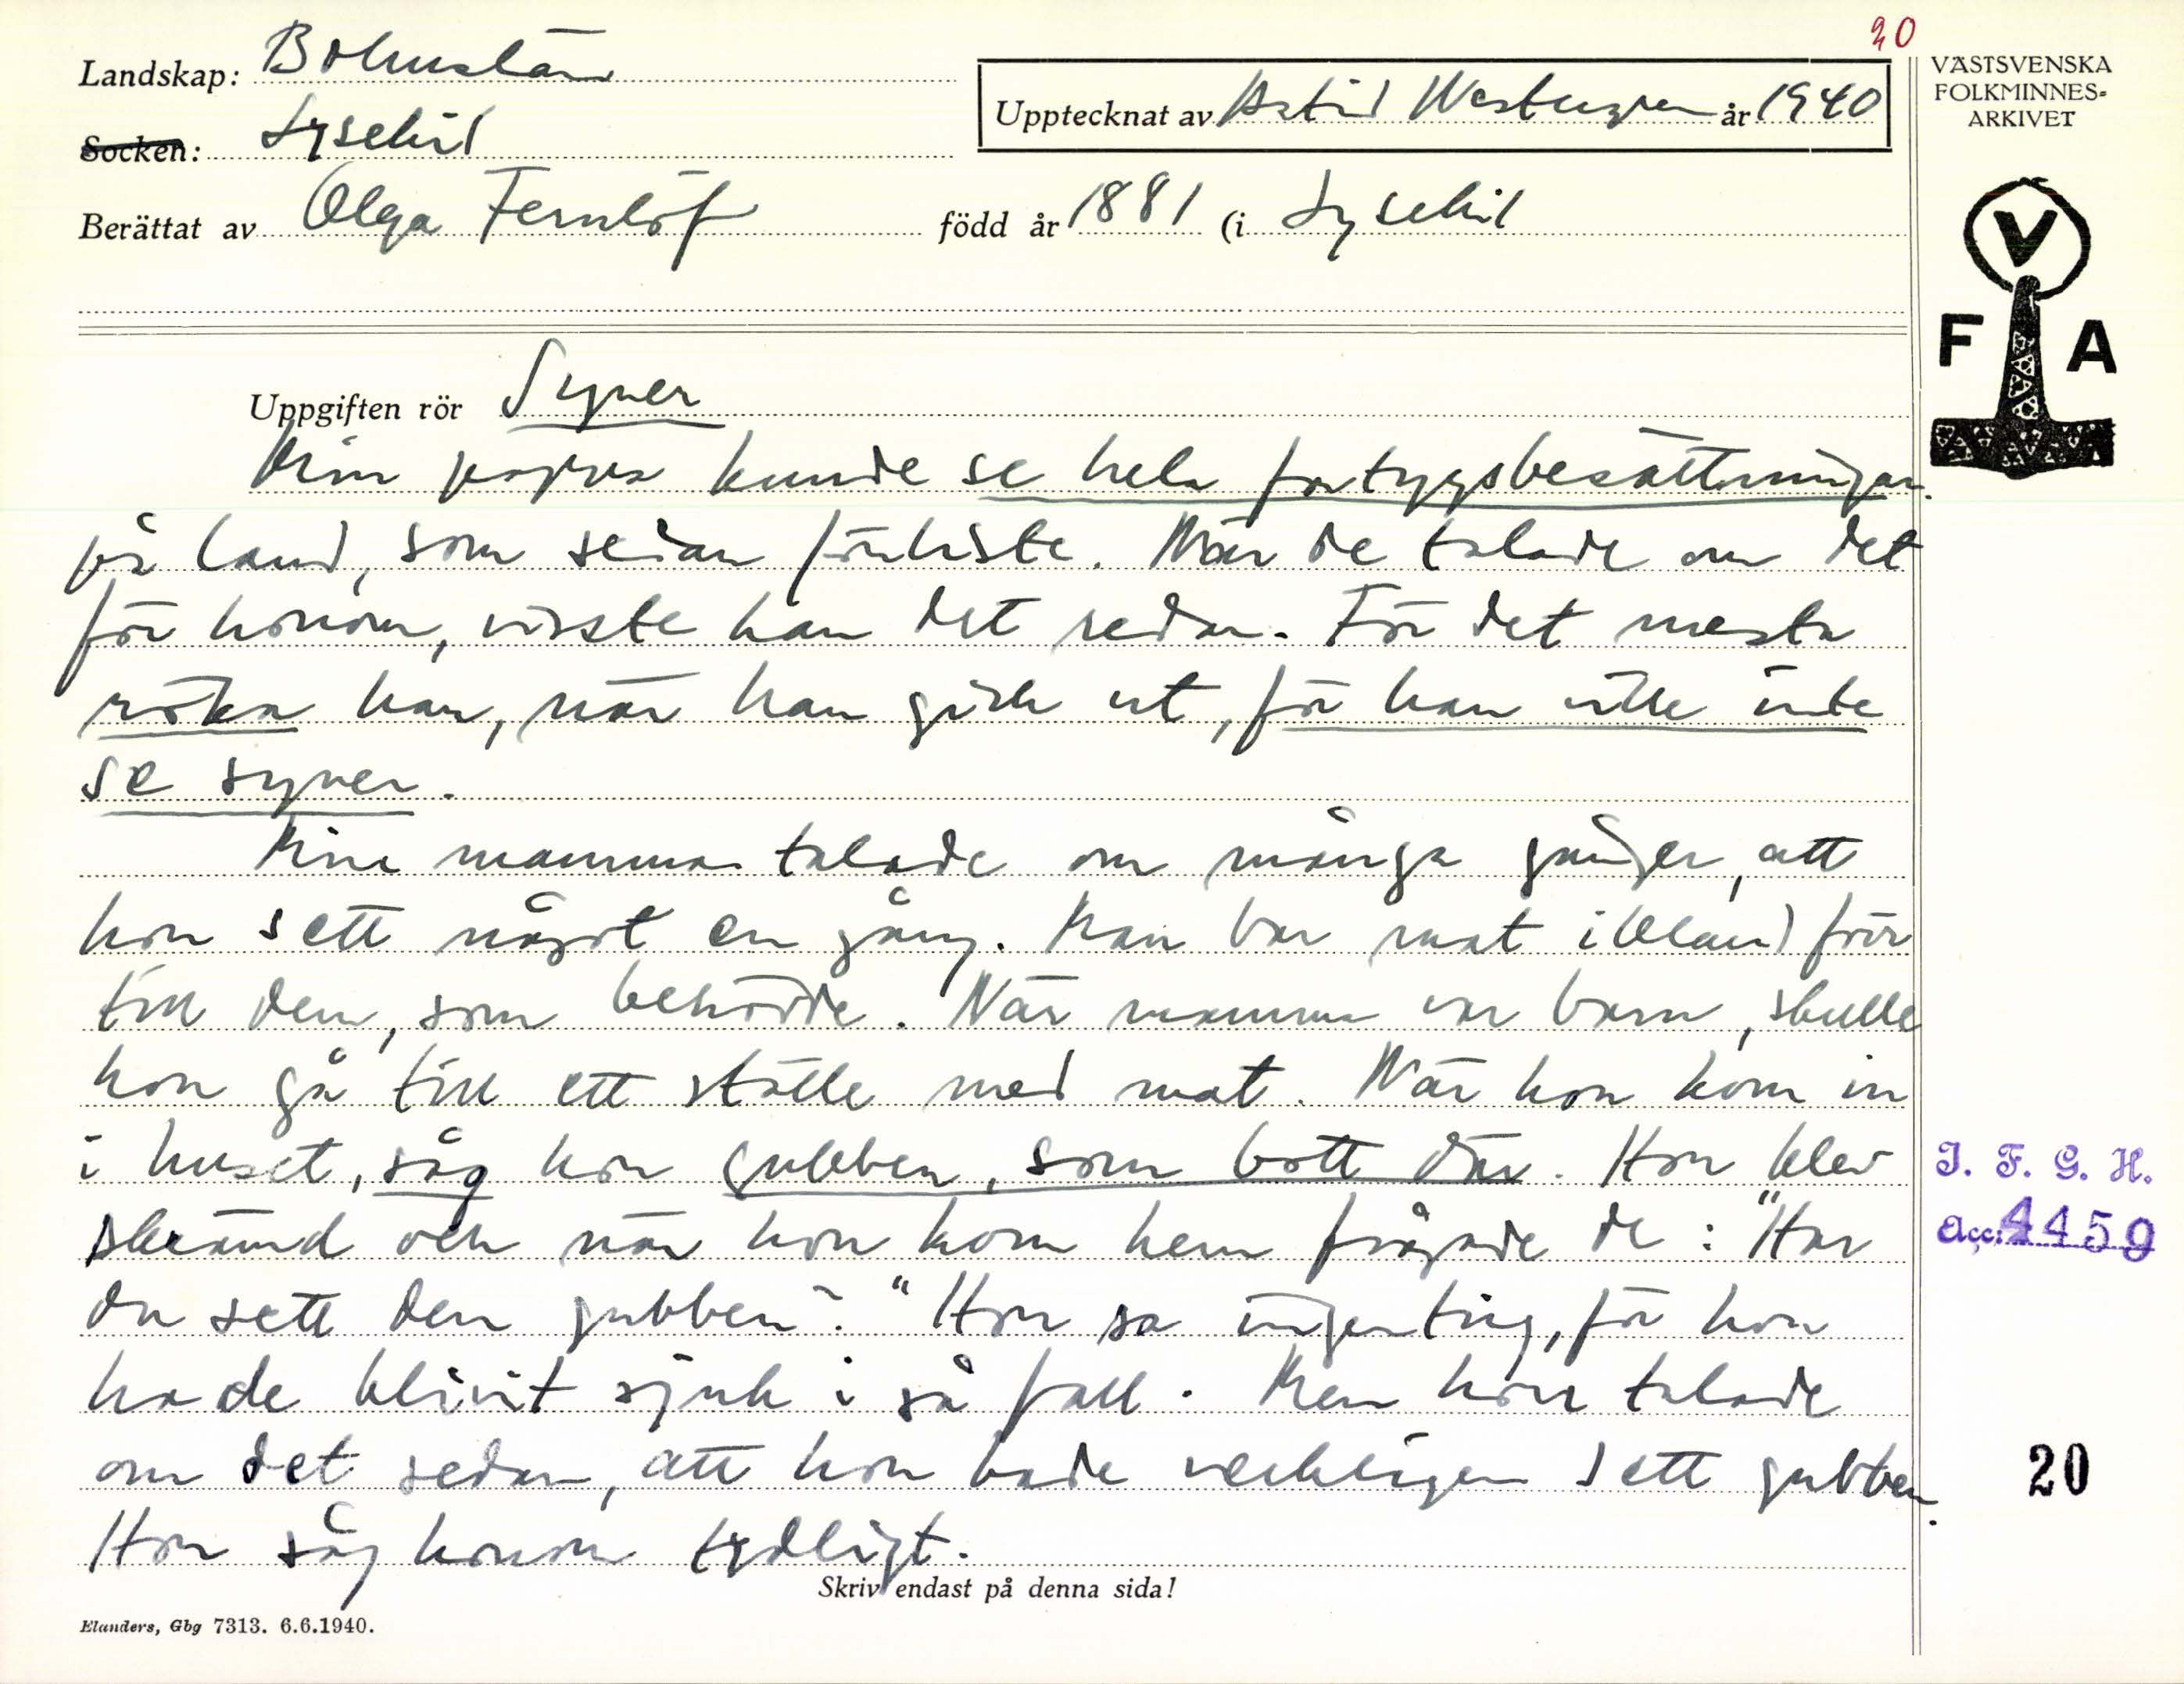 20
Landskap: Bohuslän
Upptecknat av Astrid Westergren år 1940
VÄSTSVENSKA
FOLKMINNES-
ARKIVET
Socken: Lysekil
Berättat av Olga Fernlöf född år 1881 (i Lysekil
V
F A
Uppgiften rör Syner
Min pappa kunde se hela fartygsbesättningar
på land, som sedan förliste. När de talade om det
för honom, visste han det redan. För det mesta
rökte han, när han gick ut, för han ville inte
se syner.
Min mamma talade om många gånger, att
hon sett något en gång. Man bar mat ibland förr
till dem, som behövde. När mamma var barn, skulle
hon gå till ett ställe med mat. När hon kom in
i huset, såg hon gubben, som bott där. Hon blev
skrämd och när hon kom hem frågade de: "Har
du sett den gubben?" Hon sa ingenting, för hon
hade blivit sjuk i så fall. Men hon talade
om det sedan, att hon hade verkligen sett gubben.
Hon såg honom tydligt.
J. F. G. H.
Acc. 4459
20
Skriv endast på denna sida!
Elanders, Gbg 7313. 6.6.1940.